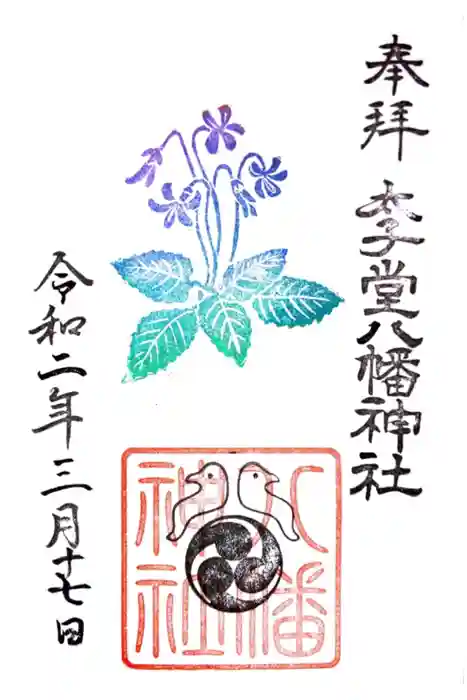 奉拝 太子堂八幡神社
八幡
神社
令和二年三月十七日